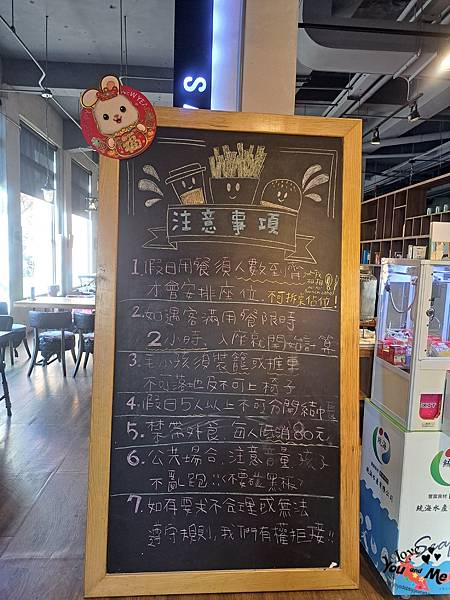 注意事項
1. 假日用餐須人數到齊
才會安排座位. 不可拆桌佔位!
2. 如遇客滿用餐限時
2小時, 入所就開始計算
3. 毛小孩須裝籠或推車
不可落地及不可上椅子
4. 假日5人以上不可分開結帳
5. 禁帶外食, 每人低消80元
6. 公共場合, 注意音量, 孩子
不亂跑!!(不要碰黑板)
7. 如有要求不合理或無法
遵守規則, 我們有權拒接!!
福
Love
You and Me